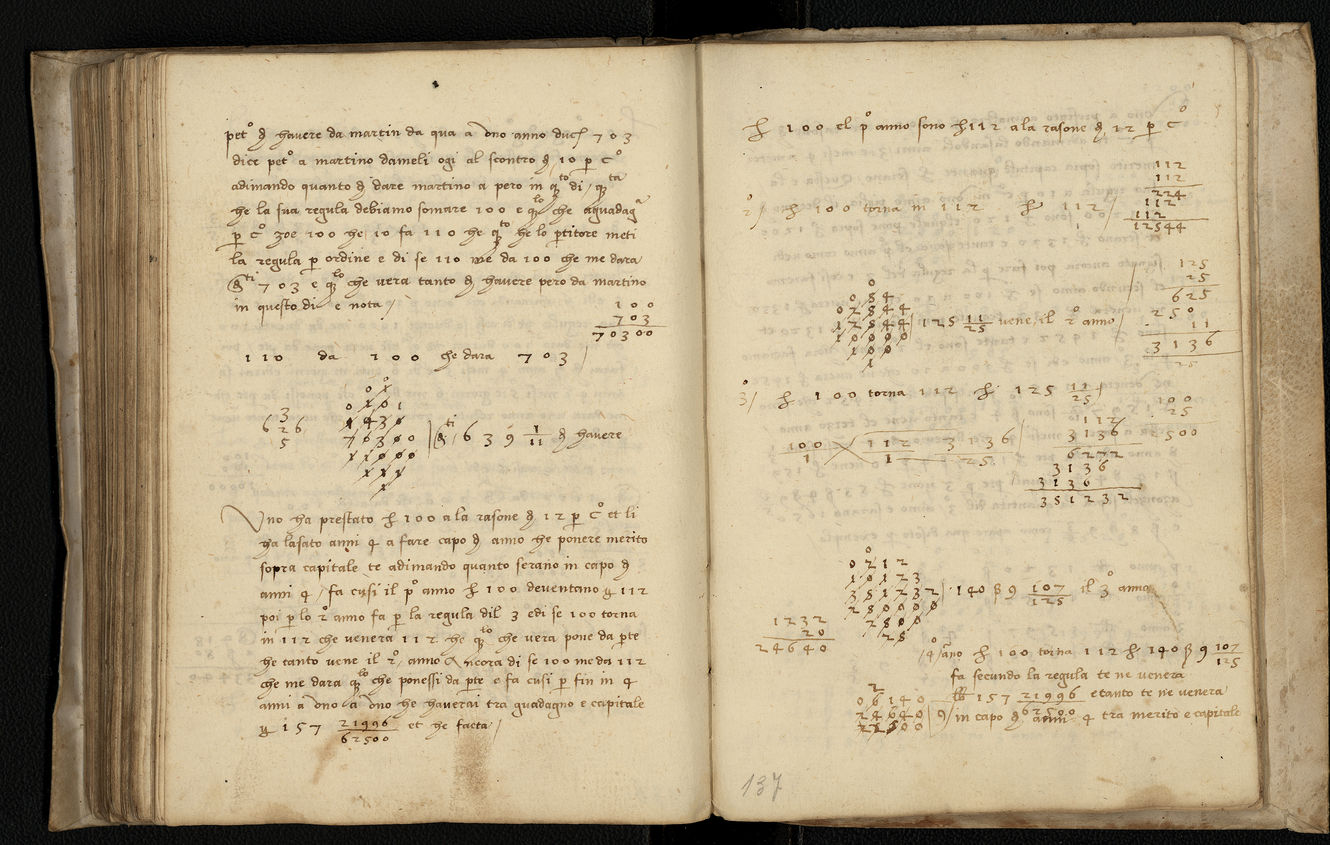 pet° d havere da martin da qua a uno anno duc 703
dice pet° a martino dameli ogi al scontro d 10 p c°
adimando quanto d dare martino a pero in q^to di / q^ta
he la sua regula debiamo somare 100 e q^lo che aguadag^a
p c° zoe 100 he 10 fa 110 he q^to he lo ptitore meti
la regula p ordine e di se 110 me da 100 che me dara
703 e q^lo che vera tanto d havere pero da martino
in questo di e nota /
100
703
70300
110 da 100 che dara 703 /
639 1/11 d havere
Uno ha prestato 100 a la rasone d 12 p c° et li
ha lasato anni 4 a fare capo d anno he ponere merito
sopra capitale te adimando quanto serano in capo d
anni 4 / fa cusi il p° anno 100 deventano 112
poi p lo 2° anno fa p la regula dil 3 e di se 100 torna
in 112 che venera 112 he q^lo che vera pone da pte
he tanto vene il 2° anno Ancora di se 100 me da 112
che me dara q^lo che ponessi da pte e fa cusi p fin in 4
anni a uno a uno he haverai tra guadagno e capitale
157 21996/62500 et he facta /
100 el p° anno sono 112 a la rasone d 12 p c°
112
112
224
112
112
12544
2°/ 100 torna in 112 112
125
25
625
250
11
3136
25
125 11/25 vene il 2° anno
3°/ 100 torna 112 125 11/25
100
25
2500
100 112 3136
1 1 25
112
3136
6272
3136
3136
351232
140 ß 9 107/125 il 3° anno
1232
20
24640
/4° ano 100 torna 112 140 ß 9 107/125
fa secundo la regula te ne venera
157 21996/62500 e tanto te ne venera
in capo d anni 4 tra merito e capitale
137